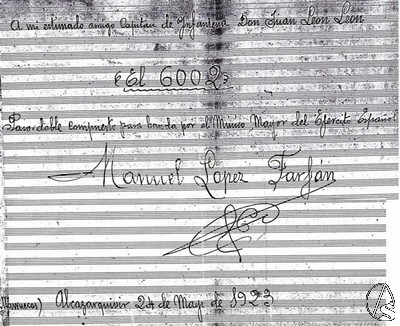 A mi estimado amigo Capitan de Infanteria Don Juan Leon Leon
"El 6002"
Paso-doble compuesto para banda por el Músico Mayor del Ejército Español
Manuel Lopez Farfán
(Marruecos) Alcazarquivir 24 de Mayo de 1923